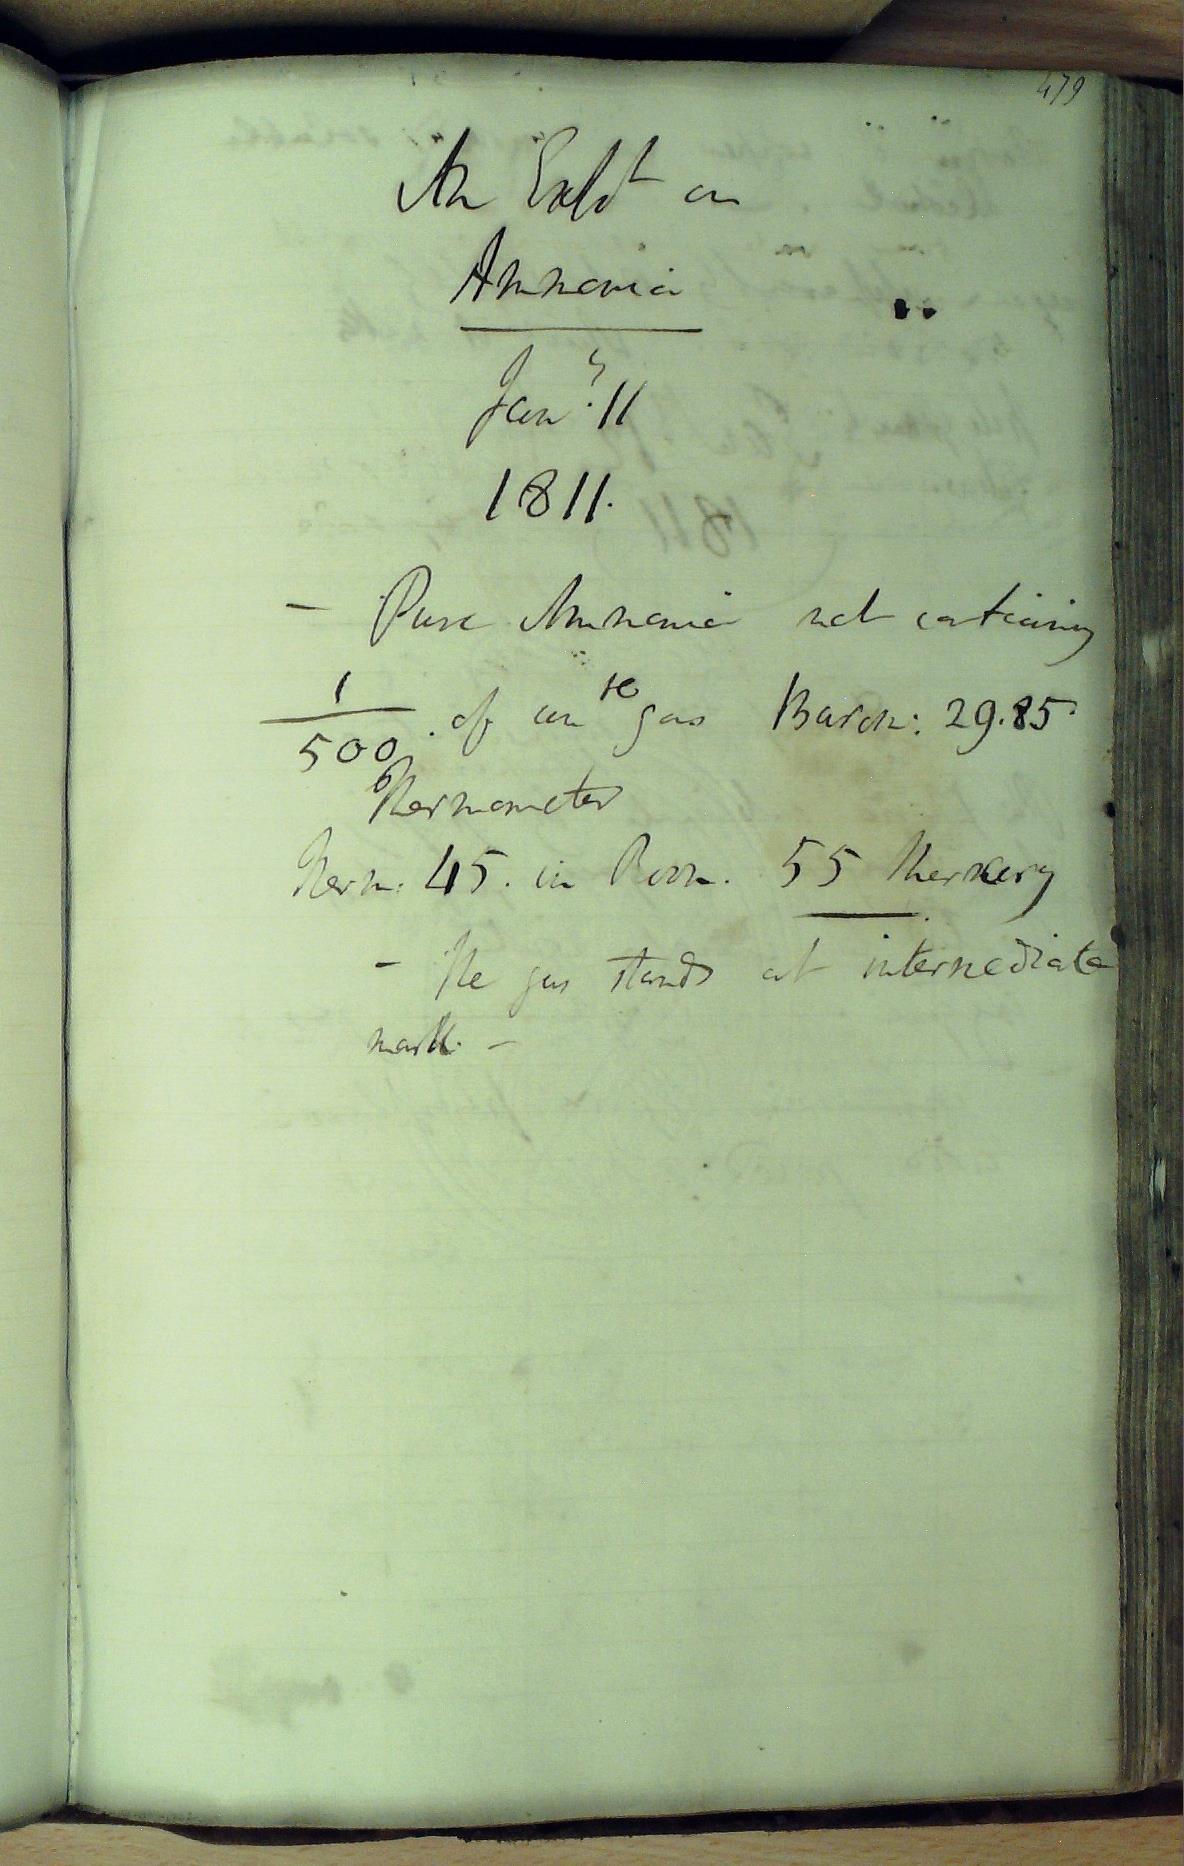 479
An Expt on
Ammonia
Jany. 11
1811.
- Pure Ammonia not containing
1/500 of com gas Barom: 29.85
Thermometer
Therm: 45. in Room. 55 Mercury
- The gas stands at intermediate
mark. -